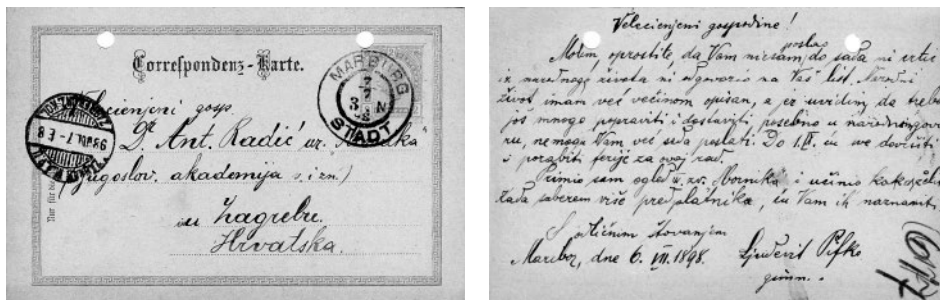 Correspondenz-Karte.
MARBURG
STADT
Velecienjeni gosp.
Dr. Ant. Radić ur.
(Jugoslov. akademija
u Zagrebu.
Hrvatska.
Velecienjeni gospodine!
Molim, oprostite, da Vam nisam poslao do sada ni crtic
iz narodnoga života ni odgovorio na Vaš list. Narodni
život imam već većinom opisan, a jer uvidim da treba
još mnogo popraviti i dostaviti posebno u narodnom govo
ru, ne mogu Vam već sada poslati. Do 1. IX. ću sve dovršiti
i porabiti ferije za ovaj rad.
Primio sam ogled II. sv. Zbornika i učinio
Kada saberem više predplatnika, ću Vam ih naznaniti.
S odličnim štovanjem
Maribor, dne 6. VII. 1898. Ljudevit Pifko